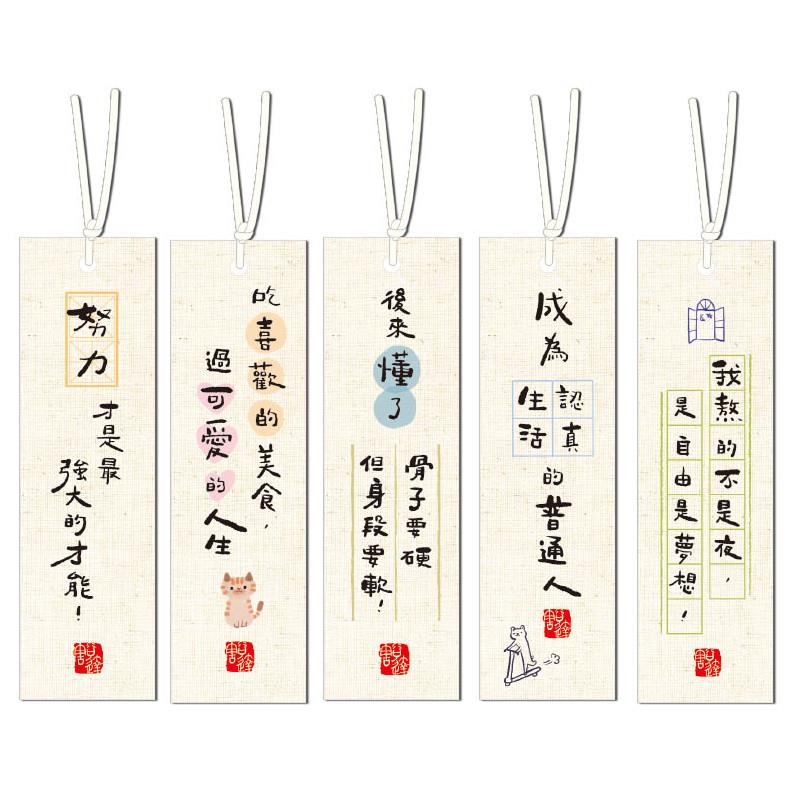 努力
才是最
強大的才能！
吃喜歡的美食，
過可愛的人生
後來懂了
骨子要硬
但身段要軟！
成為
認真
生活
的普通人
我熬的不是夜，
是自由是夢想！